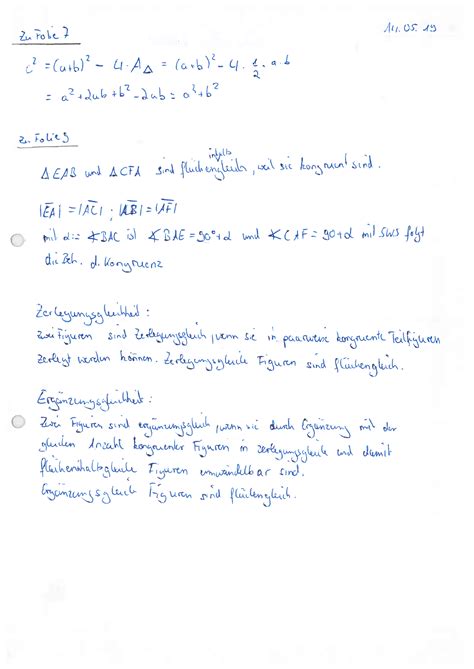 Zu Folie 7
14.05.19
c² = (a+b)² - 4·A△ = (a+b)² - 4·1/2 a·b
= a² + 2ab + b² - 2ab = a² + b²
Zu Folie 9
inhalts
△EAB und △CFA sind flächengleich, weil sie kongruent sind.
|EA| = |AC| ; |AB| = |AF|
mit α := ∢BAC ist ∢BAE = 90° + α und ∢CAF = 90 + α mit SWS folgt
die Beh. d. Kongruenz
Zerlegungsgleichheit :
Zwei Figuren sind zerlegungsgleich, wenn sie in paarweise kongruente Teilfiguren
zerlegt werden können. Zerlegungsgleiche Figuren sind flächengleich.
Ergänzungsgleichheit :
Zwei Figuren sind ergänzungsgleich, wenn sie durch Ergänzung mit der
gleichen Anzahl kongruenter Figuren in zerlegungsgleiche und damit
flächeninhaltsgleiche Figuren umwandelbar sind.
Ergänzungsgleiche Figuren sind flächengleich.